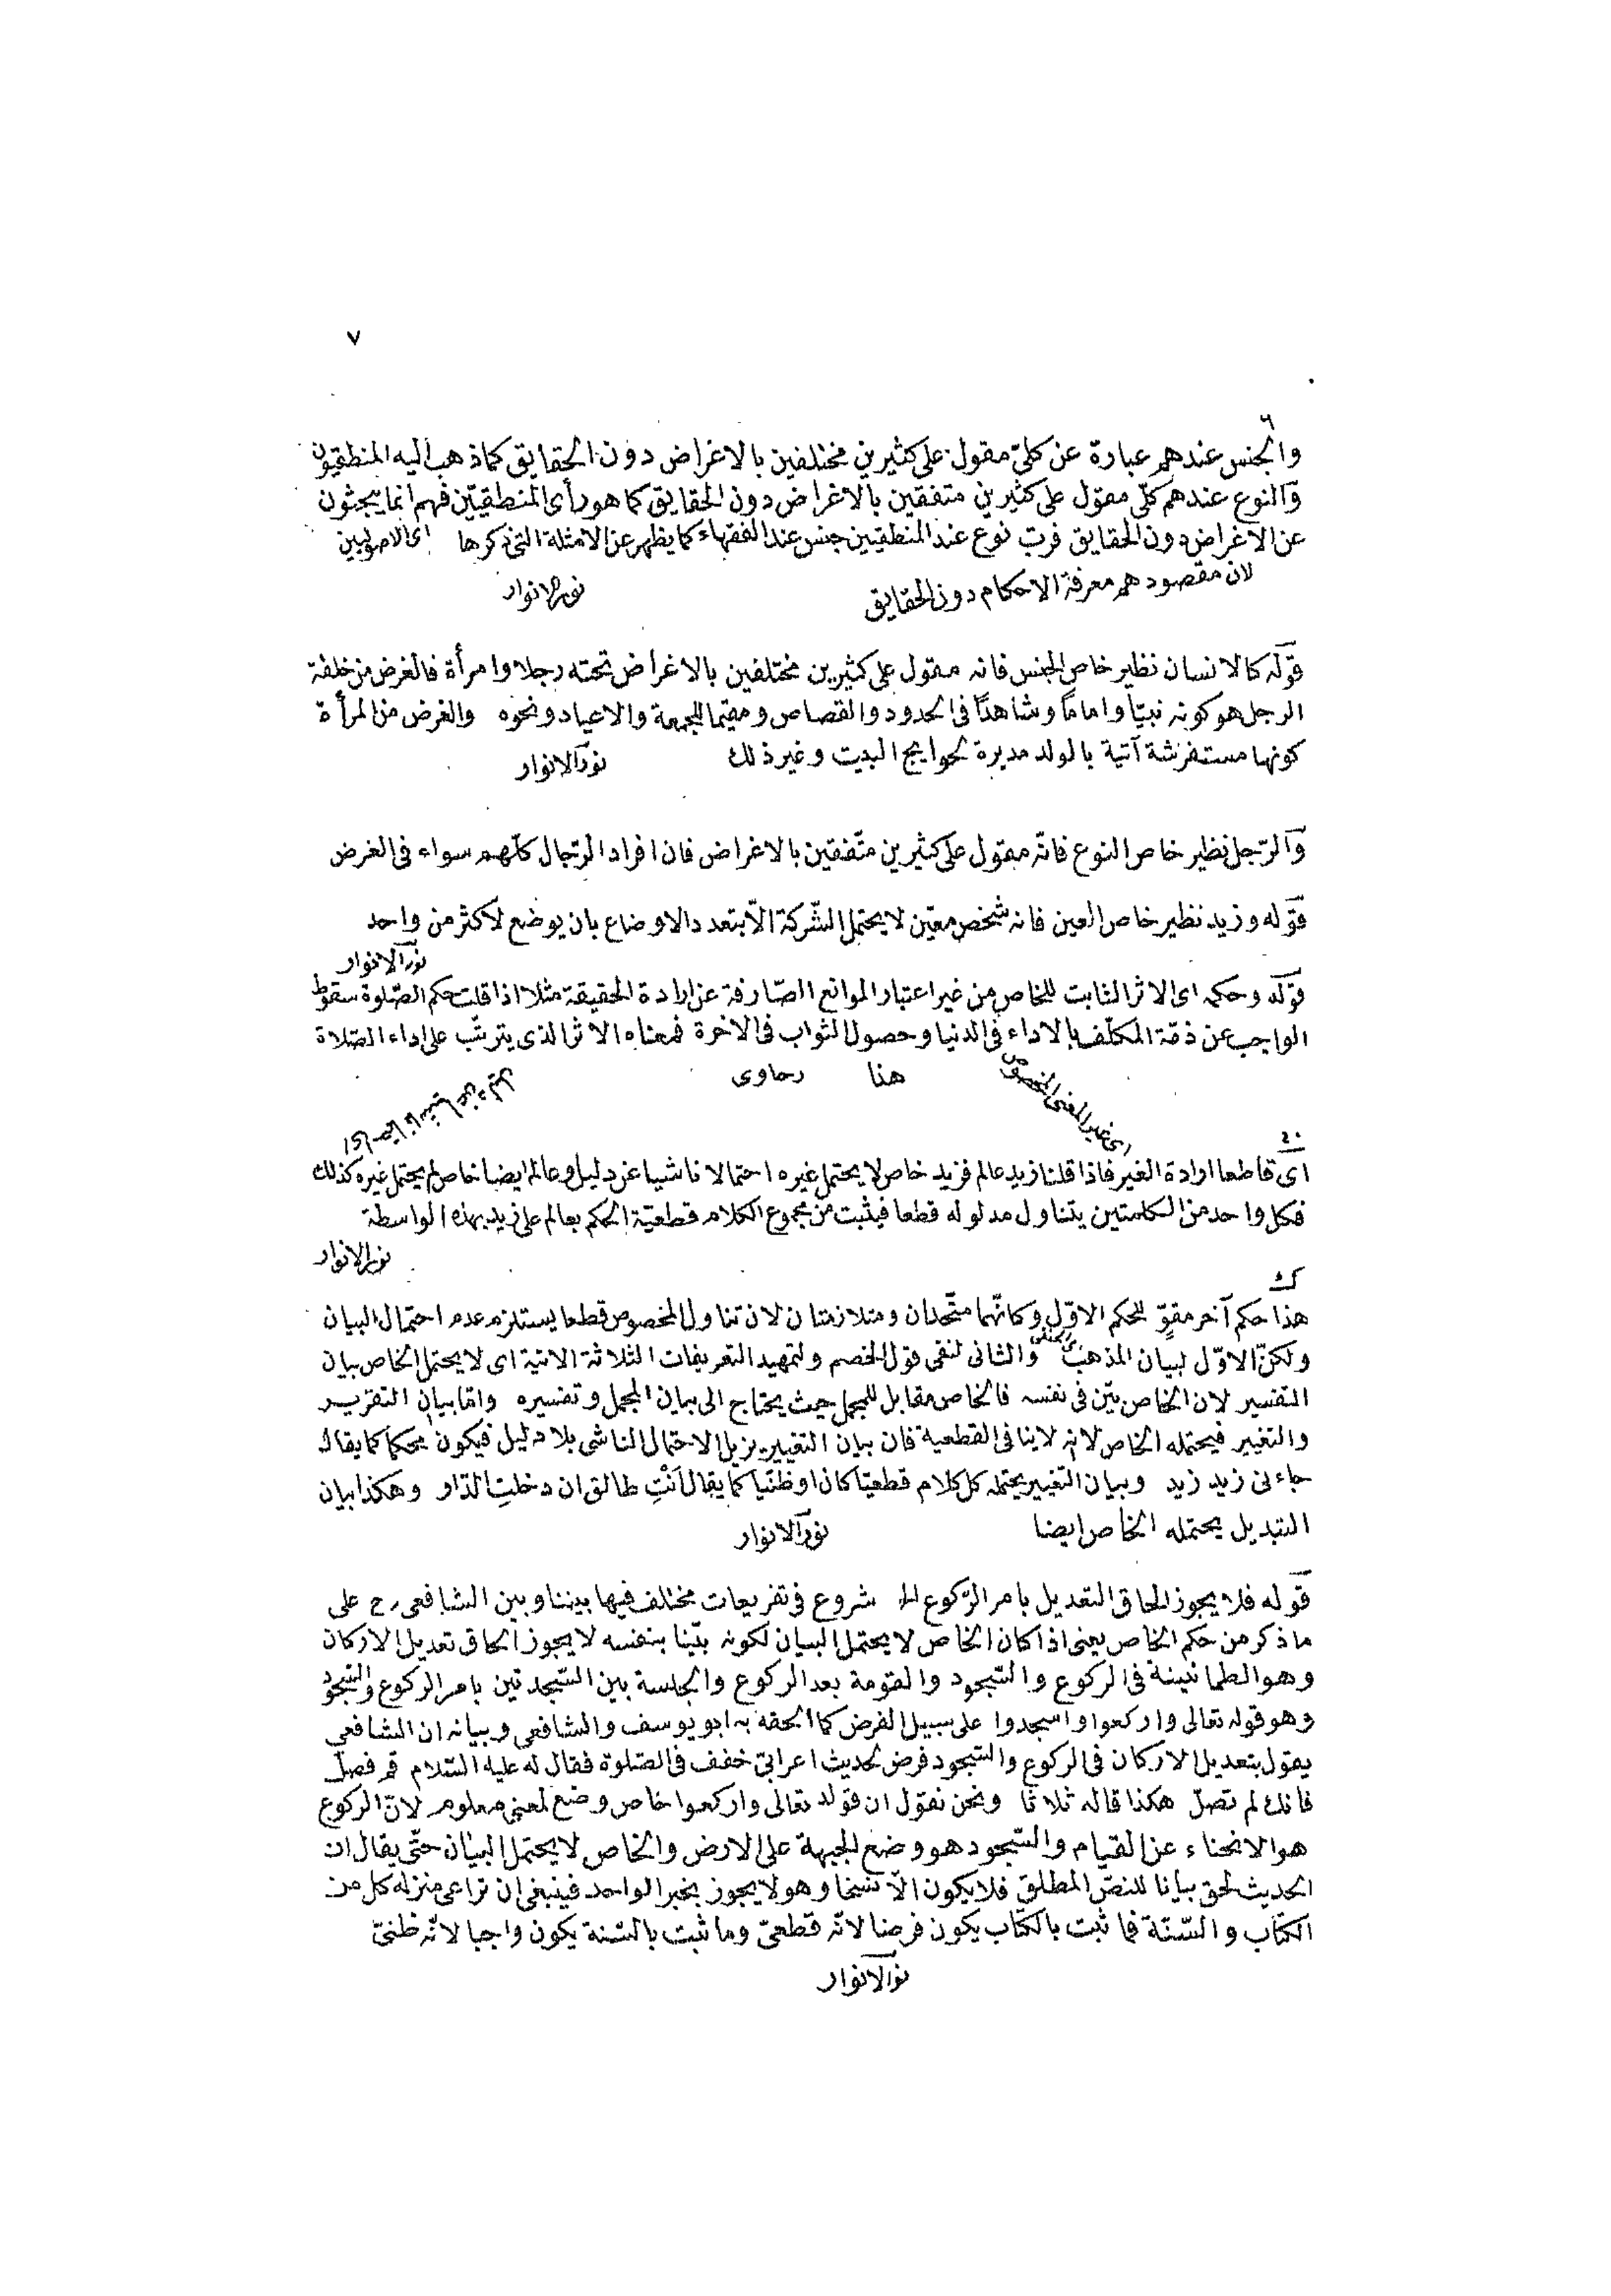 ٧
٦
والجنس عندهم عبارة عن كلّيّ مقول على كثيرين مختلفين بالاغراض دون الحقايق كما ذهب اليه المنطقيون
والنوع عندهم كلّى مقول على كثيرين متفقين بالاغراض دون الحقايق كما هو رأى المنطقيّين فهم انما يبحثون
عن الاغراض دون الحقايق فربّ نوع عند المنطقيين جنس عند الفقهاء كما يظهر عن الامثلة التى ذكرها اى الاصوليين
لان مقصودهم معرفة الاحكام دون الحقايق نور الانوار
قوله كالانسان نظير خاص الجنس فانه مقول على كثيرين مختلفين بالاغراض تحته رجلا وامرأة فالغرض من خلقة
الرجل هو كونه نبيّا واماماً وشاهداً فى الحدود والقصاص ومقيما للجمعة والاعياد ونحوه والغرض من المرأة
كونها مستفرشة آتية بالولد مديرة لحوايج البيت وغير ذلك نور الانوار
والرّجل نظير خاص النوع فانّه مقول على كثيرين متّفقين بالاغراض فان افراد الرّجال كلّهم سواء فى الغرض
قوله وزيد نظير خاص العين فانه شخص معيّن لا يحتمل الشّركة الّا بتعدد الاوضاع بان يوضع لاكثر من واحد
نور الانوار
قوله وحكمه اى الاثر الثابت للخاص من غير اعتبار الموانع الصّارفة عن ارادة الحقيقة مثلا اذا قلت حكم الصّلوة سقوط
الواجب عن ذمّة المكلّف بالاداء فى الدنيا وحصول الثواب فى الاخرة فمعناه الاثر الذى يترتّب على اداء الصّلاة
هنا رهاوى
اى غير المعنى المخصوص
٢٠
اى قاطعا ارادة الغير فاذا قلنا زيد عالم فزيد خاص لا يحتمل غيره احتمالا ناشيا عن دليل وعالم ايضا خاص لم يحتمل غيره كذلك
فكل واحد من الكلمتين يتناول مدلوله قطعا فيثبت من مجموع الكلام قطعيّة الحكم بعالم على زيد بهذه الواسطة
نور الانوار
هذا حكم آخر مقوٍّ للحكم الاوّل وكانّهما متّحدان ومتلازمتان لان تناول المخصوص قطعا يستلزم عدم احتمال البيان
ولكنّ الاوّل لبيان المذهب اى الحنفى والثانى لنفى قول الخصم ولتمهيد التعريفات الثلاثة الاتية اى لا يحتمل الخاص بيان
التفسير لان الخاص بيّن فى نفسه فالخاص مقابل للمجمل حيث يحتاج الى بيان المجمل وتفسيره وامّا بيان التقرير
والتغيير فيحتمله الخاص لانه لا ينافى القطعية فان بيان التغيير يزيل الاحتمال الناشى بلا دليل فيكون محكما كما يقال
جاءنى زيد زيد وبيان التّغيير يحتمله كل كلام قطعيّا كان او ظنّيا كما يقال اَنْتِ طالق ان دخلتِ الدّار وهكذا بيان
التبديل يحتمله الخاص ايضا نور الانوار
قوله فلا يجوز الحاق التعديل بامر الرّكوع الخ شروع فى تفريعات مختلف فيها بيننا وبين الشافعى رح على
ما ذكر من حكم الخاص يعنى اذا كان الخاص لا يحتمل البيان لكونه بيّنا بنفسه لا يجوز الحاق تعديل الاركان
وهو الطمانينة فى الركوع والسّجود والقومة بعد الركوع والجلسة بين السّجدتين بامر الركوع والسّجود
وهو قوله تعالى واركعوا واسجدوا على سبيل الفرض كما الحقه به ابو يوسف والشافعى وبيانه ان الشافعى
يقول بتعديل الاركان فى الركوع والسّجود فرض لحديث اعرابىّ خفف فى الصّلوة فقال له عليه السّلام قم فصلّ
فانك لم تصلّ هكذا قاله ثلاثا ونحن نقول ان قوله تعالى واركعوا خاص وضع لمعنى معلوم لانّ الركوع
هو الانحناء عن القيام والسّجود هو وضع الجبهة على الارض والخاص لا يحتمل البيان حتّى يقال ان
الحديث لحق بيانا للنصّ المطلق فلا يكون الّا نسخا وهو لا يجوز بخبر الواحد فينبغى ان تراعى منزلة كل من
الكتاب والسّنّة فما ثبت بالكتاب يكون فرضا لانّه قطعىّ وما ثبت بالسّنة يكون واجبا لانّه ظنّىّ
نور الانوار